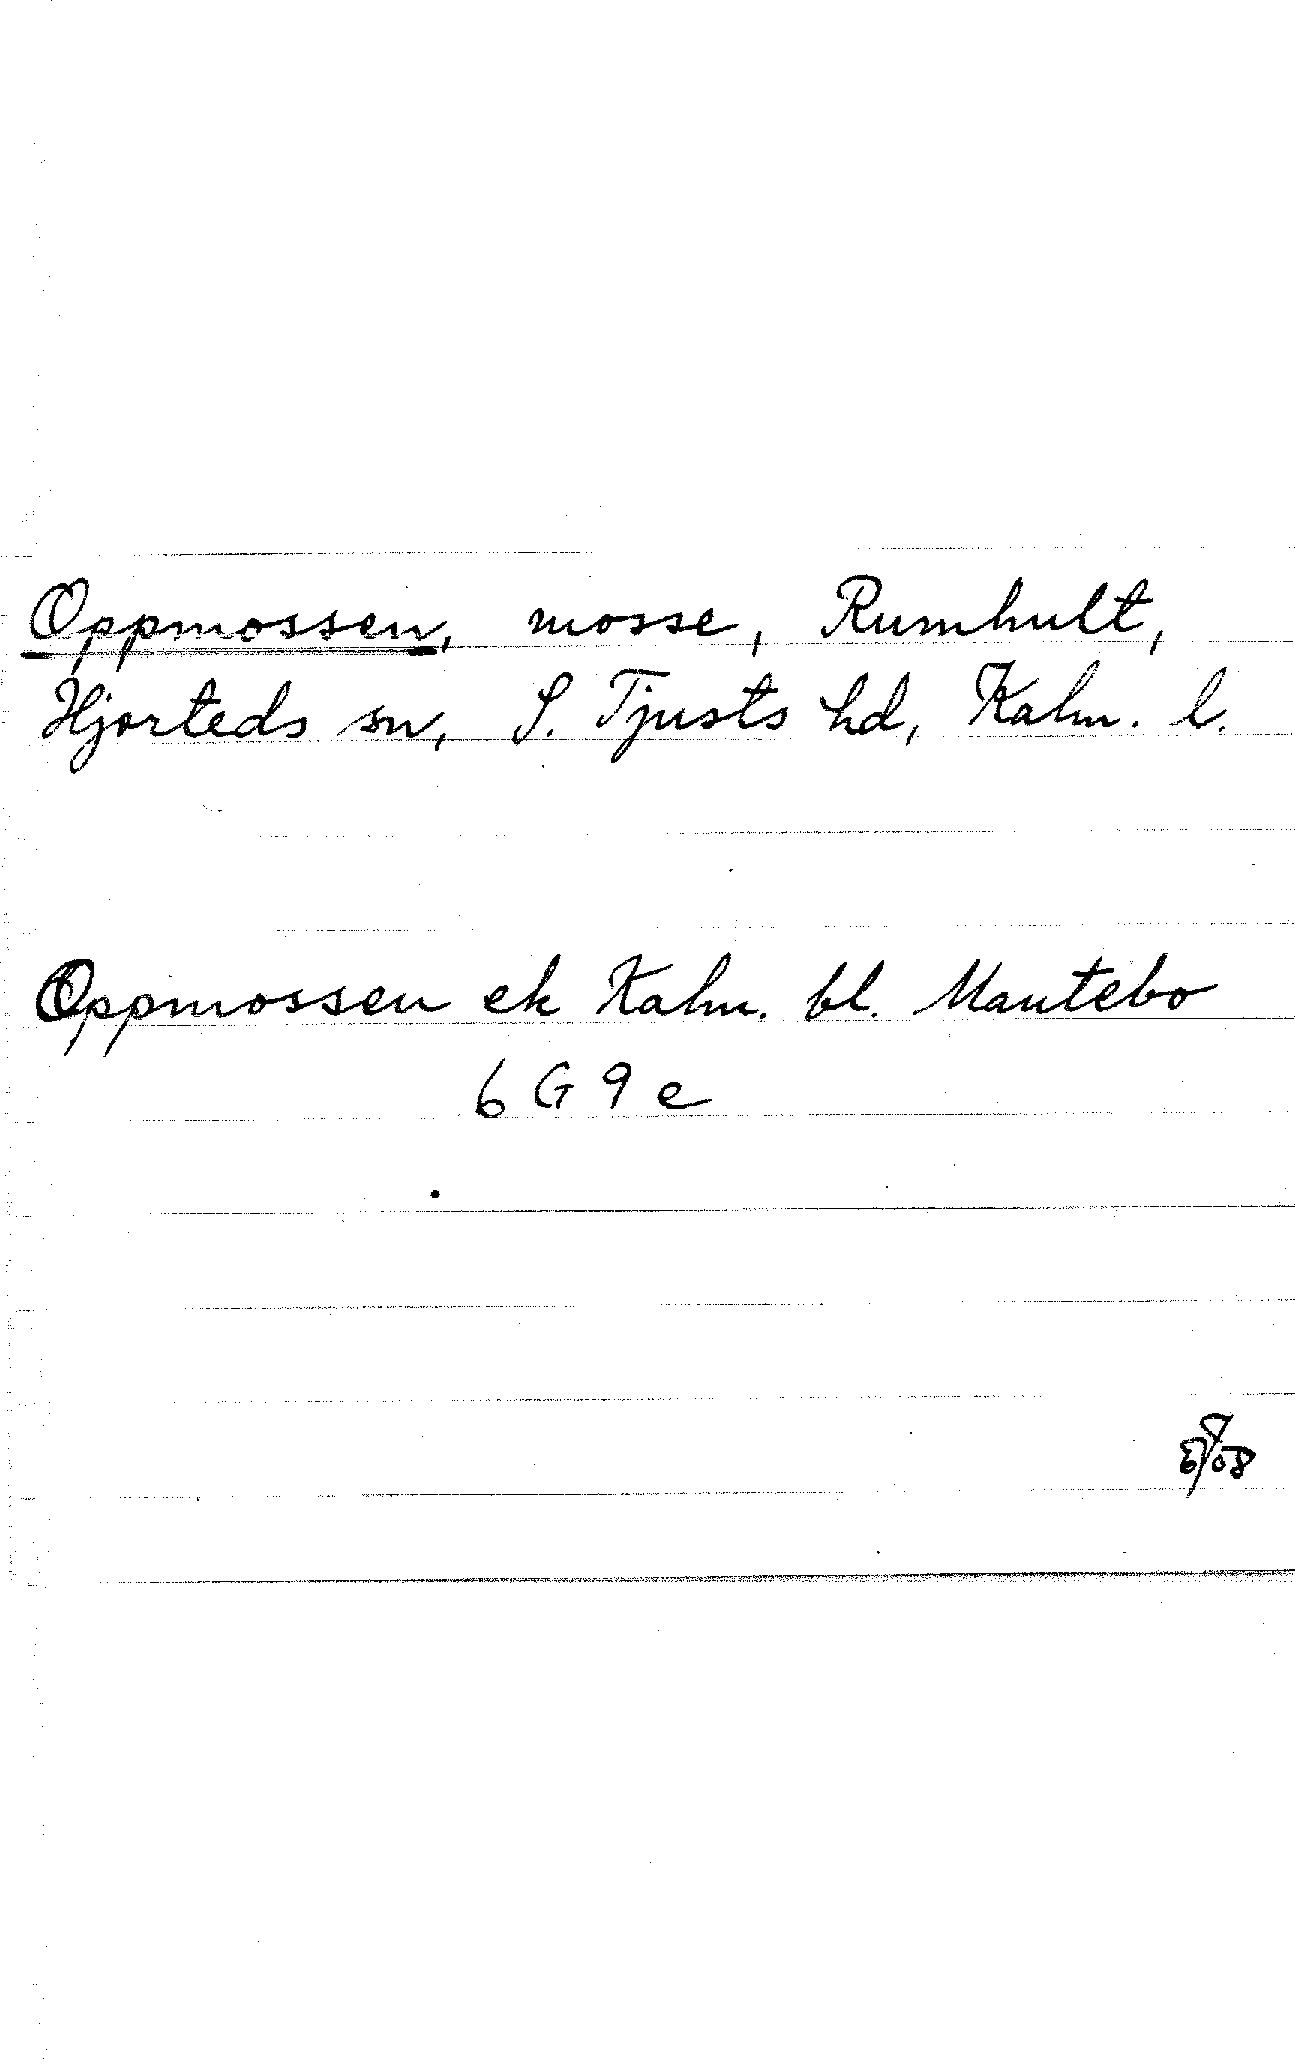 Oppmossen, mosse, Rumhult,
Hjorteds sn, S. Tjusts hd, Kalm. l.
Oppmossen ek Kalm. bl. Mantebo
6 G 9 e